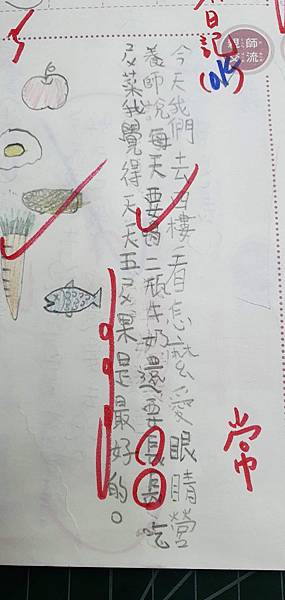 日記
(015)
親師交流
今天我們去四樓看怎麼愛眼睛營
養師說每天要喝二瓶牛奶還要長長吃
ㄕㄨ菜我覺得天天五ㄕㄨ果是最好的。
常